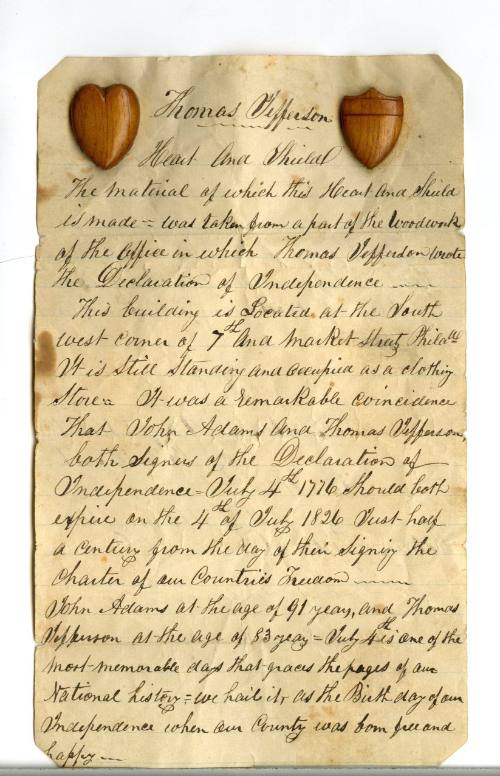 Thomas Jefferson
Heart And Shield
The material of which this Heart and Shield
is made = was taken from a part of the Woodwork
of the Office in which Thomas Jefferson wrote
the Declaration of Independence
This building is Located at the South
west corner of 7th And Market Street Philada
It is Still Standing and Occupied as a clothing
Store = It was a remarkable coincidence
That John Adams And Thomas Jefferson,
both Signers of the Declaration of
Independence = July 4th 1776 Should both
expire on the 4th of July 1826 Just half
a century from the day of their Signing the
Charter of our Countries Freedom
John Adams at the age of 91 years, and Thomas
Jefferson at the age of 83 years = July 4th is one of the
most memorable days that graces the pages of our
National history = we hail it, as the Birth day of our
Independence when our County was born free and
happy